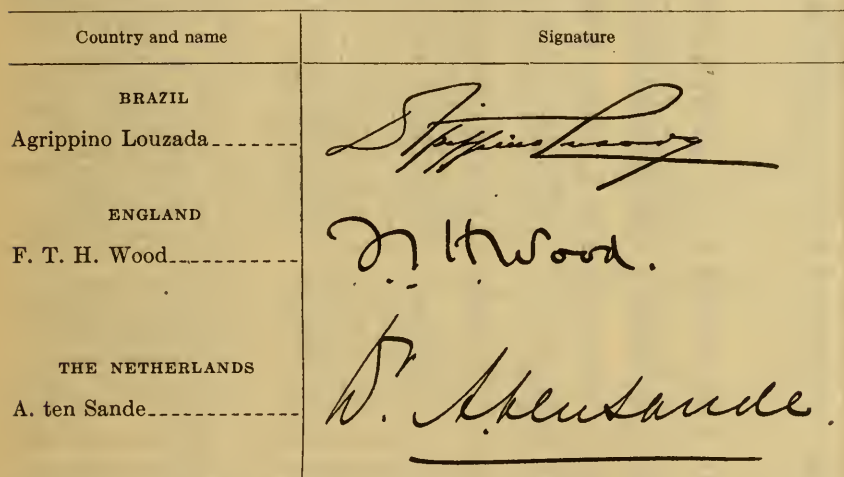 Country and name
Signature
BRAZIL
Agrippino Louzada
Agrippino Louzada
ENGLAND
F. T. H. Wood
F. T. H. Wood.
THE NETHERLANDS
A. ten Sande
Dr. A. ten Sande.